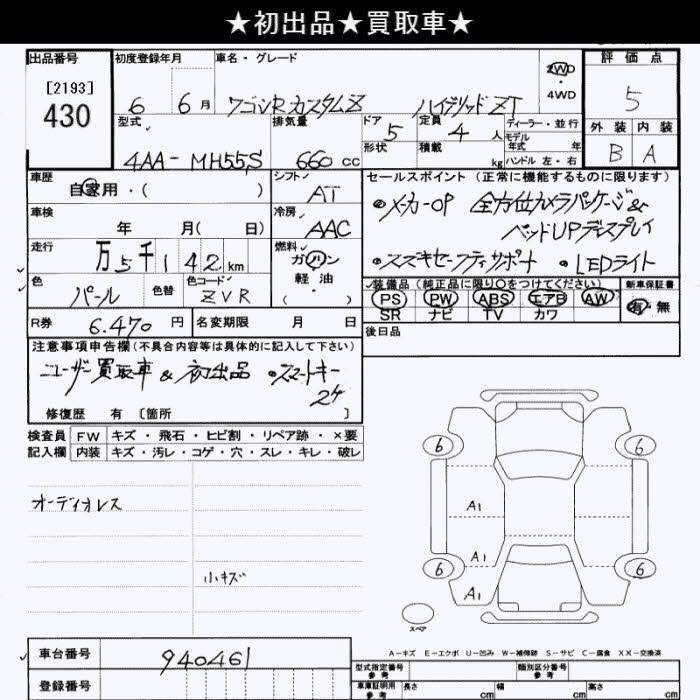 ★初出品★買取車★
出品番号 初度登録年月 車名・グレード 評価点
[2193]
430
6 6月 ワゴンRカスタムZ ハイブリッドZT 2WD ・ 4WD 5
型式 排気量 ドア 定員 ディーラー・並行 外装 内装
4AA-MH55S 660cc 5 4人 モデル年式 年 B A
形状 積載 kg ハンドル 左・右
車歴 シフト セールスポイント (正常に機能するものに限ります)
自家用・( ) AT
メーカーOP 全方位カメラパッケージ&
車検 冷房
年 月( 日) AAC ヘッドUPディスプレイ
走行 燃料
万5千142km ガソリン スズキセーフティサポート LEDライト
軽油
色 色替 色コード ( ・ ) 装備品(純正品に限り○をつけてください) 新車保証書
パール ZVR PS PW ABS エアB AW 有・無
SR ナビ TV カワ
R券 6,470円 名変期限 月 日 後日品
注意事項申告欄(不具合内容等は具体的に記入して下さい)
ユーザー買取車 & 初出品 スマートキー
2ケ
修復歴 有 [箇所 ]
検査員 FW キズ・飛石・ヒビ割・リペア跡・×要
記入欄 内装 キズ・汚レ・コゲ・穴・スレ・キレ・破レ
6 6
オーディオレス
A1
A1
小キズ
6 6
A1
スペア
車台番号 940461
A－キズ E－エクボ U－凹み W－補修跡 S－サビ C－腐食 XX－交換済
登録番号
型式指定番号 参考 類別区分番号 参考
車庫証明用 参考 長さ cm 幅 cm 高さ cm